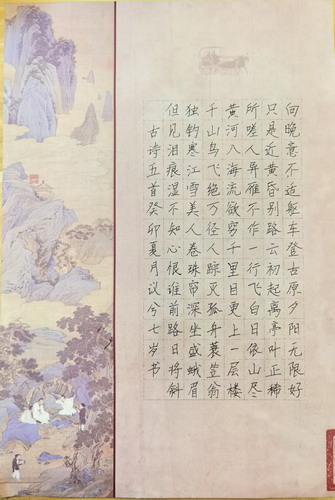 向晚意不适驱车登古原夕阳无限好
只是近黄昏别路云初起离亭叶正稀
所嗟人异雁不作一行飞白日依山尽
黄河入海流欲穷千里目更上一层楼
千山鸟飞绝万径人踪灭孤舟蓑笠翁
独钓寒江雪美人卷珠帘深坐蛾眉
但见泪痕湿不知心恨谁前路日将斜
古诗五首癸卯夏月议兮七岁书